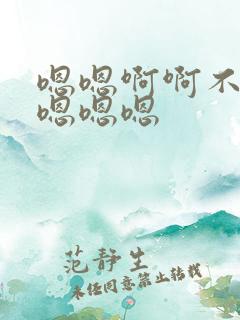 嗯嗯啊啊不
嗯嗯嗯
范静生
未经同意禁止转载